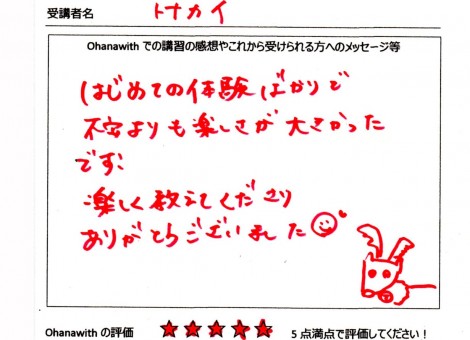 受講者名 トナカイ
Ohanawith での講習の感想やこれから受けられる方へのメッセージ等
はじめての体験ばかりで
不安よりも楽しさが大きかった
です!
楽しく教えてくださり
ありがとうございました
Ohanawith の評価 ★★★★★ 5 点満点で評価してください!